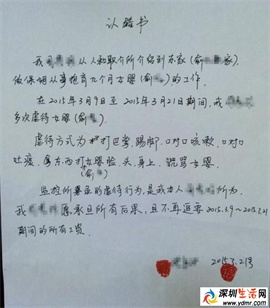 认错书
我 从人和职介所介绍到东家（俞 家）
做保姆从事照顾九个月女婴（俞 ）的工作。
在2015年3月9日至2015年3月21日期间，我
多次虐待女婴（俞 ）。
虐待方式为 打巴掌 踢脚、口对口咳嗽、口对口
吐痰、拿东西打女婴脸、头、身上，辱骂女婴
（俞 ）
监控所暴录的虐待行为，是我本人 所为。
我 愿承担所有后果，且不再追要2015.3.9~2015.3.21
期间的所有工资。
2015.3.21号
深圳生活网
www.ydmr.com